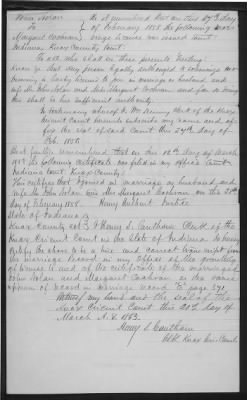 John Nolan Be it remembered that on this 27th day
To of February 1858 the following mar-
Margaret Cochran riage license was issued
Indiana Knox County Court
To all who shall see these presents Greeting
Know ye that any person legally authorized to solemnize mat-
rimony is hereby licensed to join in marriage as husband and
wife John Nolan and Miss Margaret Cochran, and for so doing
this shall be his sufficient authority.
In testimony whereof I
Circuit Court hereunto subscribe my name and af-
fix the seal of said Court this 27th day of
Feb. 1858.
Be it further remembered that on this day of March
1858 the following certificate was filed in my office
Indiana Court Knox County
This certifies that I joined in marriage as husband and
wife John Nolan and Margaret Cochran on the
day of February 1858. Henry Justice
State of Indiana
Knox County I Henry S. Cauthorn Clerk of the
Knox Circuit Court in the State of Indiana do hereby
Certify the above to be a true and correct transcript from
the marriage record in my office of the granting
of license and of the certificate of the marriage of
John Nolan and Margaret Cochran as the same
appears of record in marriage record "C" page
Witness my hand and the seal of the
Knox Circuit Court this 20th day of
March A.D. 1863.
Henry S. Cauthorn
Clk Knox Circ Court